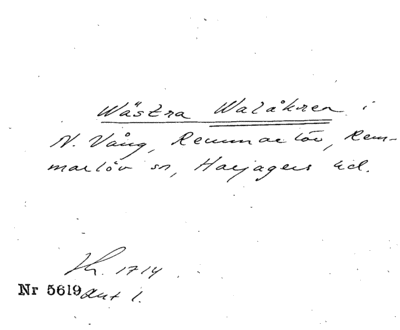 Wästra Walåkren i
N. Vång, Remmarlöv, Rem-
marlöv sn, Harjagers hd.
Lh. 1714
Nr 5619 Akt 1.